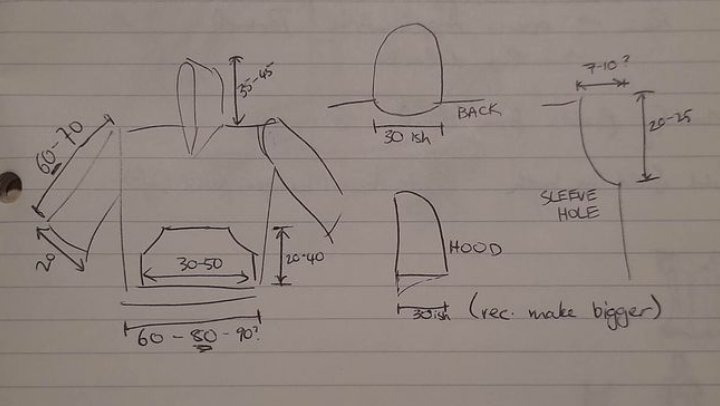 35-45
60-70
20
30-50
20-40
60 - 80 - 90?
BACK
30 ish
HOOD
30ish (rec. make bigger)
7-10?
20-25
SLEEVE
HOLE